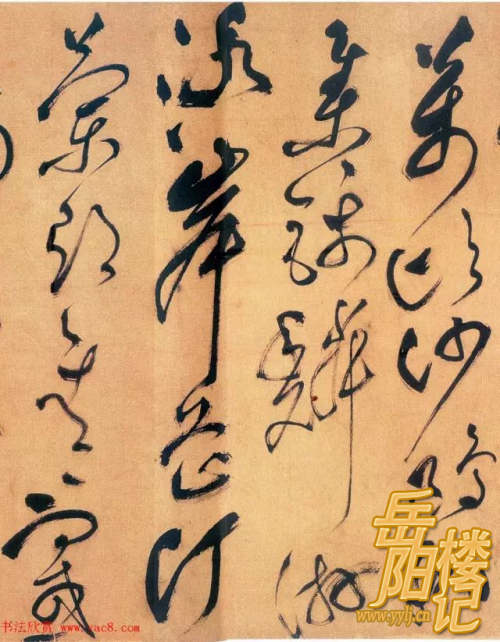 萬頃沙鷗
集錦鱗游
泳岸芷汀
蘭郁〻青〻而或
岳阳楼记
www.yylj.cn
书法欣赏 www.yac8.com